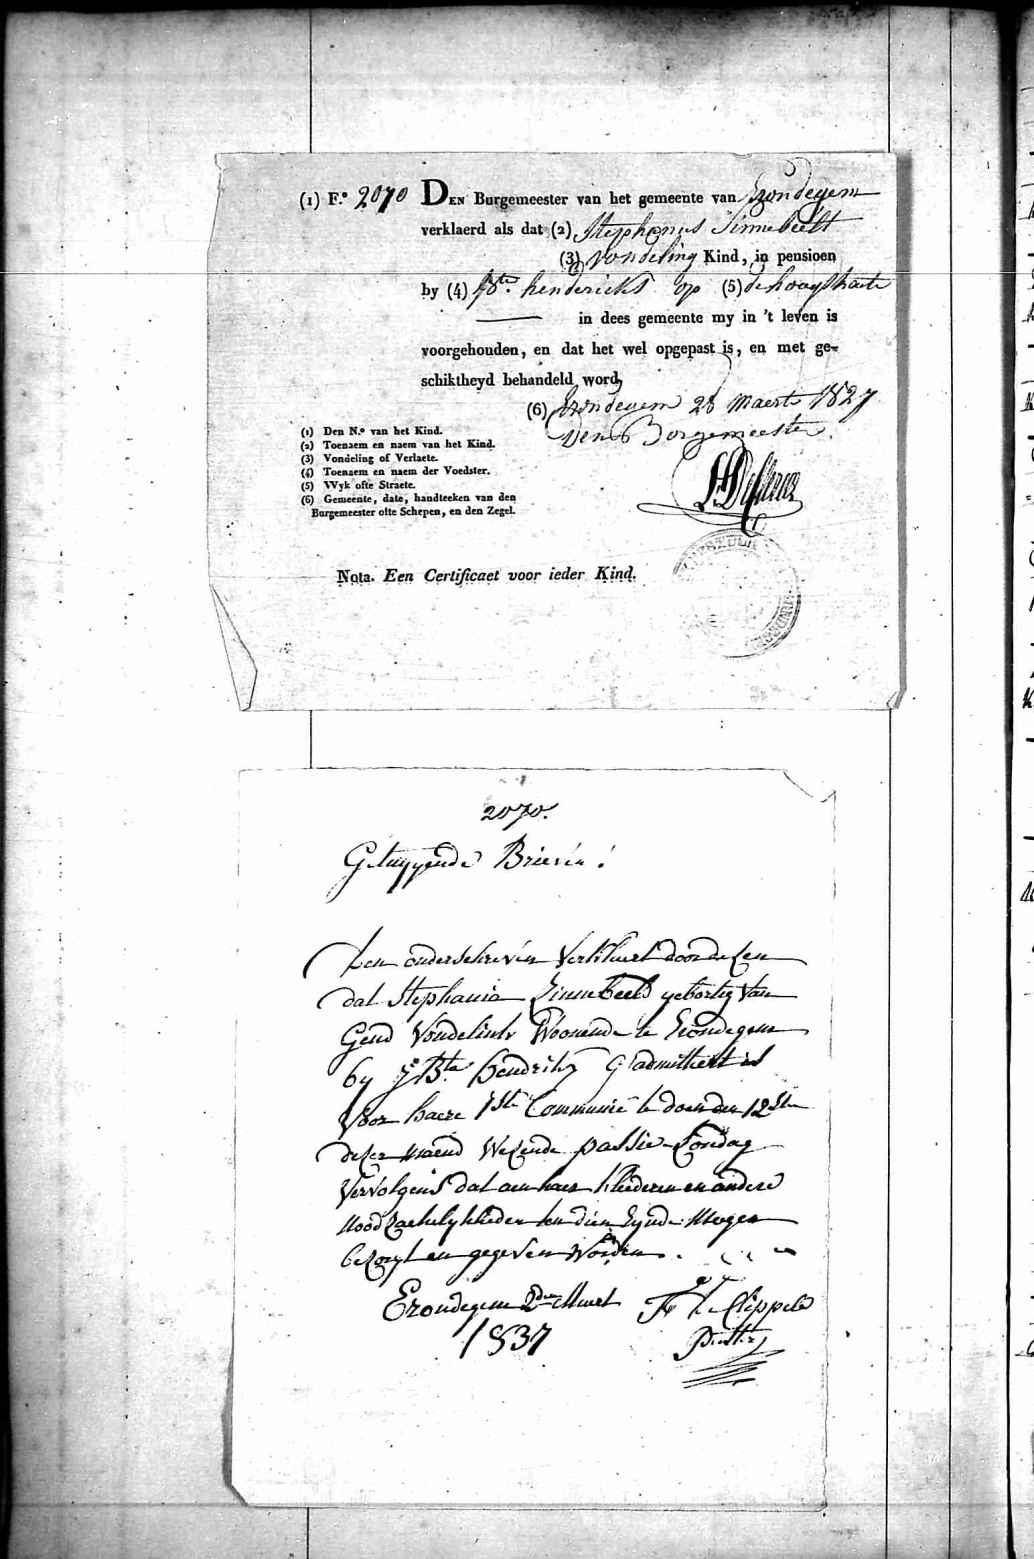 (1) F.° 2070 DEN Burgemeester van het gemeente van Erondegem
verklaerd als dat (2) Stephanus Sinnebeelt
(3) vondeling Kind, in pensioen
by (4) Bte. hendericks op (5) de hoogstraete
in dees gemeente my in 't leven is
voorgehouden, en dat het wel opgepast is, en met ge-
schiktheyd behandeld word,
(6) Erondegem 28 maert 1827
Den Borgemeester.
(1) Den N.° van het Kind.
(2) Toenaem en naem van het Kind.
(3) Vondeling of Verlaete.
(4) Toenaem en naem der Voedster.
(5) Wyk ofte Straete.
(6) Gemeente, date, handteeken van den
Burgemeester ofte Schepen, en den Zegel.
Nota. Een Certificaet voor ieder Kind.
2070.
Getuygende Brieven :
den onderschreven Verklaert door dezen
dat Stephania Zinnebeeld gebortig van
Gend Vondelink Woonende te Erondegem
by Bte Hendrikx geadmitteert is
Voor haere 1ste Communie te doen den 12ste
dezer maend Wezende passie Zondag
Vervolgens dat aen haer kleederen en andere
Noodzaekelykheden ten dien Eynde Mogen
bezorgt en gegeven Worden.
Erondegem 2den Maert
De Clippele
1837